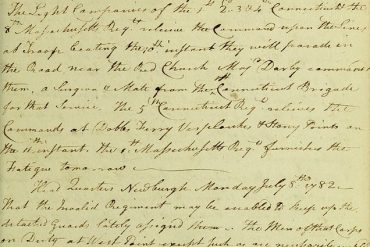 The Light Companies of the 1st 2. 3 & 4 Connecticut & the
8th Massachusetts Regts relieve the Command upon the Lines
at Troop beating the 10th instant they will parade in
the Road near the Red Church Majr Darby commands
them, a Surgeon's Mate from the Connecticut Brigade
for that Service. The 5th Connecticut Regt relieves the
Commands at Dobbs Ferry Verplancks & Stony Points on
the instant the Massachusetts Regt furnishes the
Fatigue tomorrow
Head Quarters Newburgh Monday July 8th 1782
That the Invalid Regiment may be enabled to keep up the
detached Guards lately assigned them the Men of that Corps
on Duty at West Point except such as are